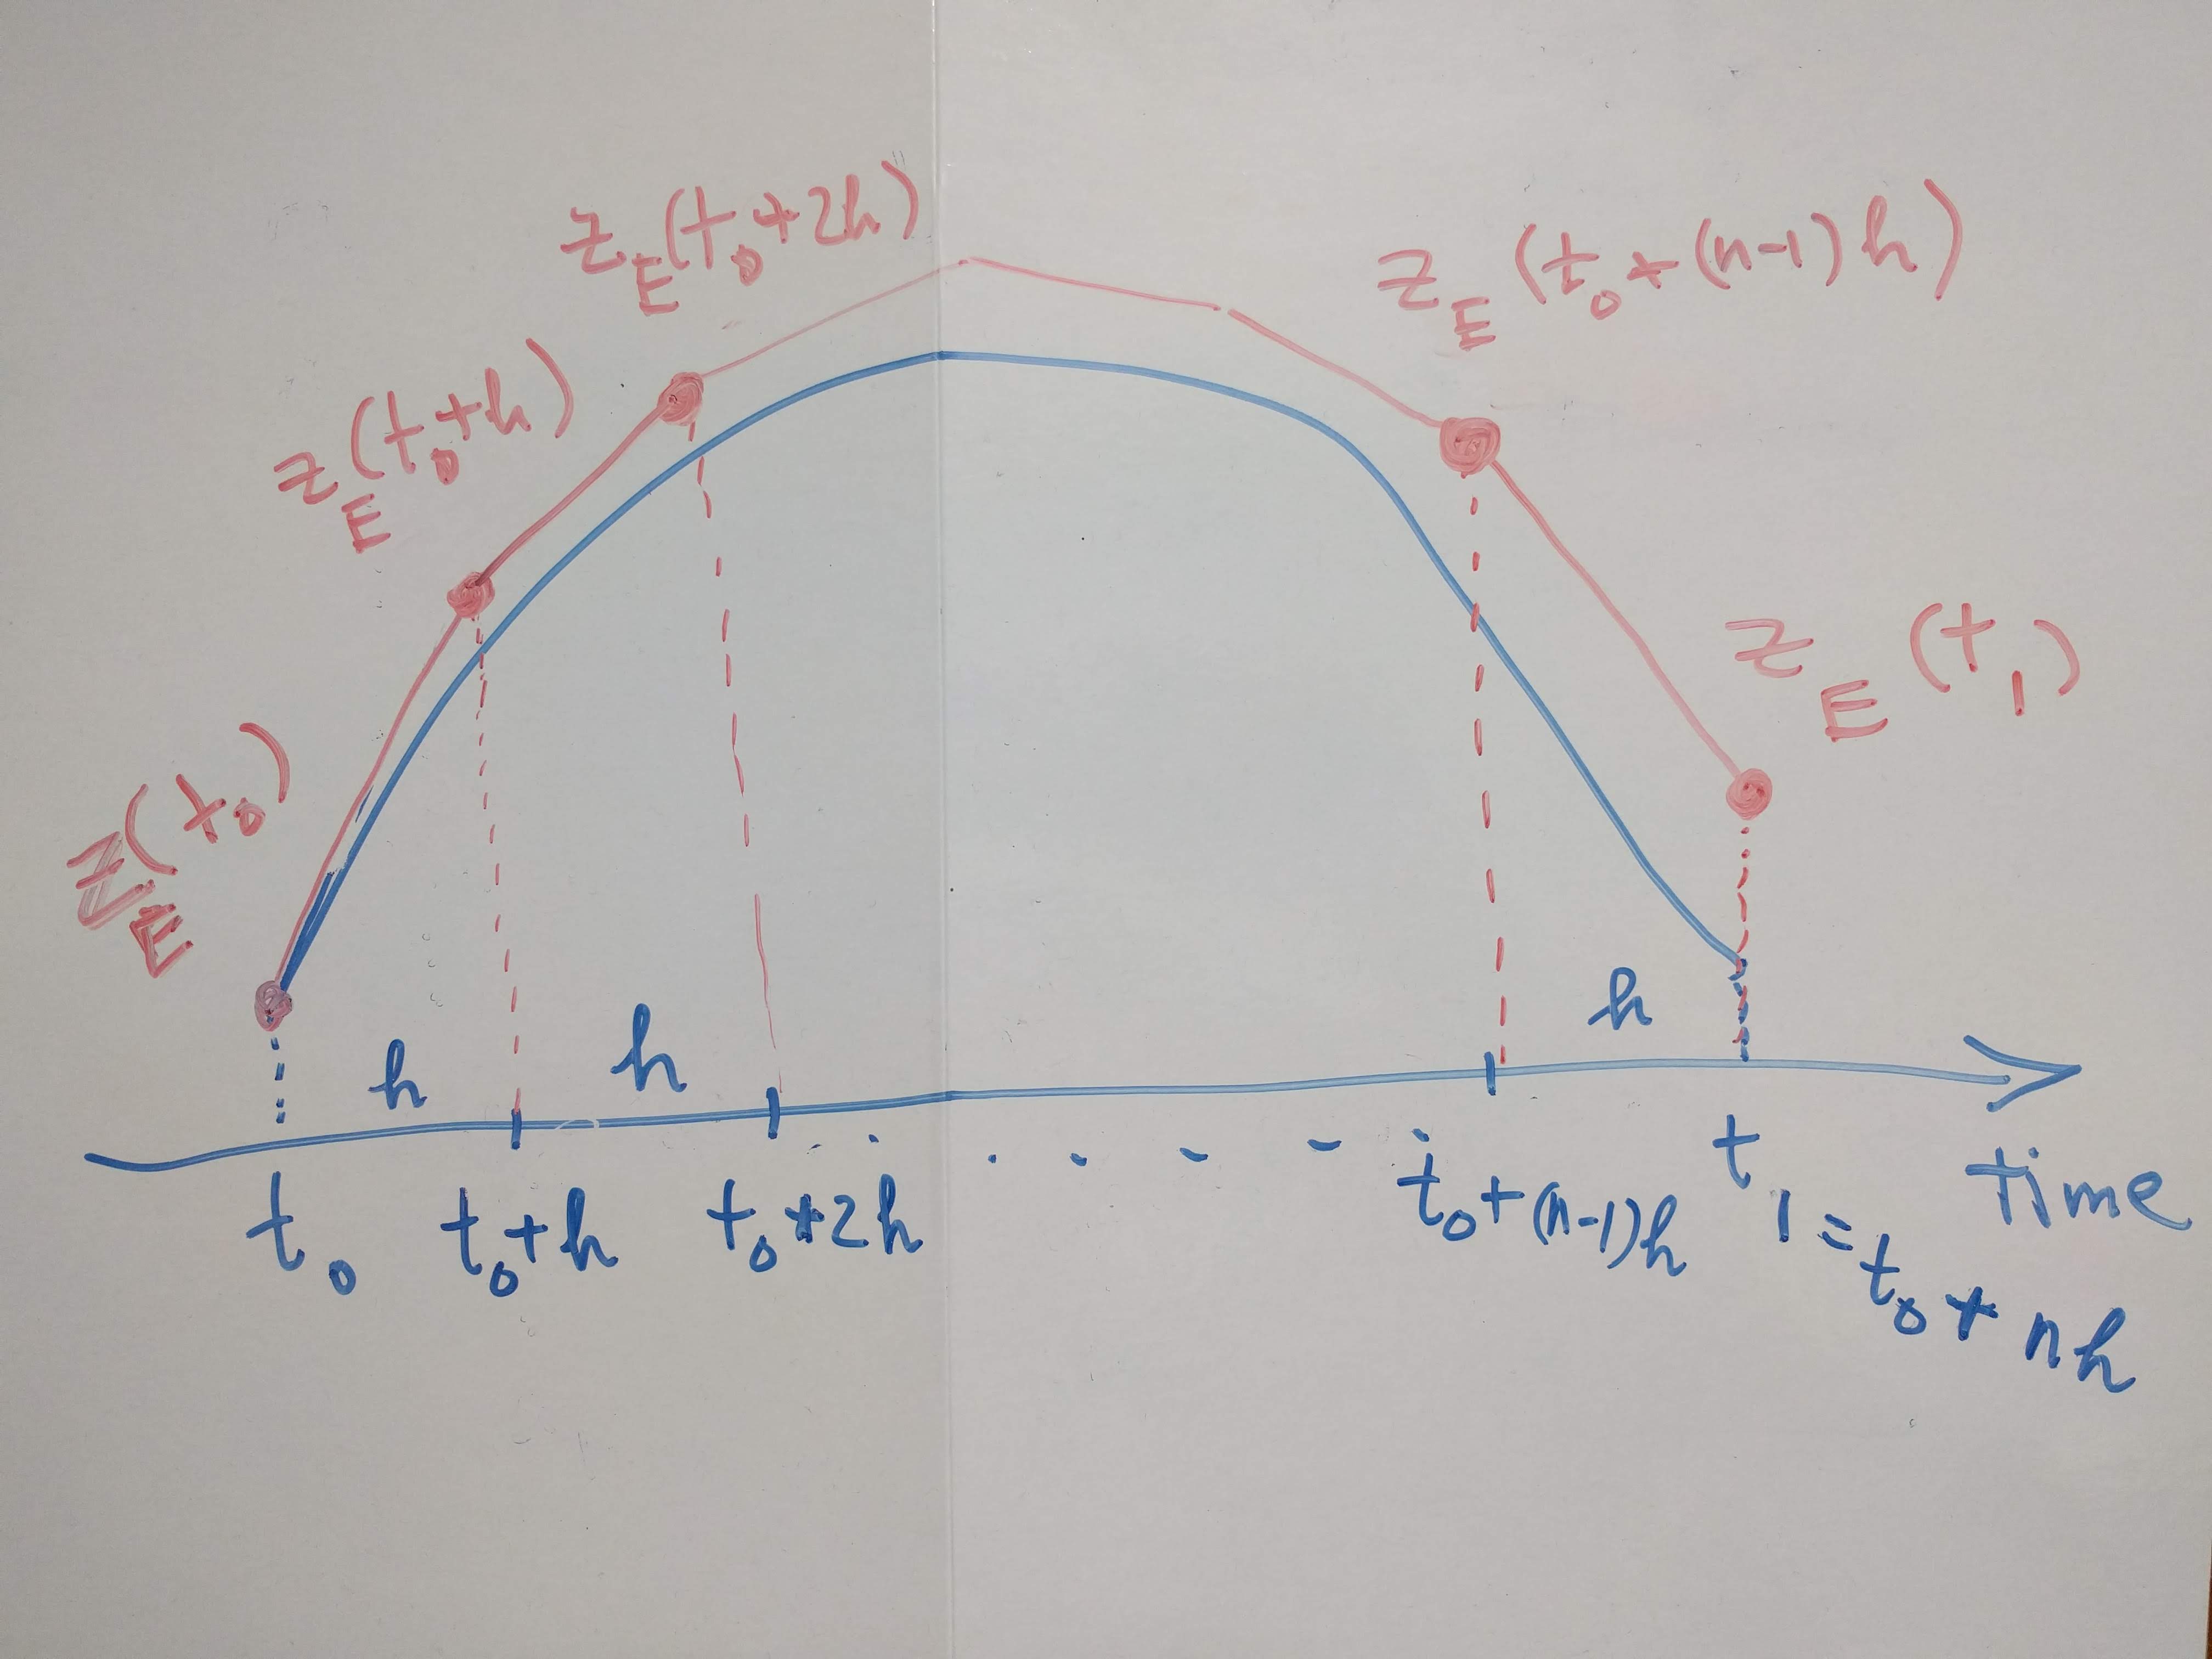 z_E(t_0+2h)
z_E(t_0+(n-1)h)
z_E(t_0+h)
z_E(t_1)
z_E(t_0)
h
h
h
t_0
t_0+h
t_0+2h
. . . . . . .
t_0+(n-1)h
t_1=t_0+nh
time